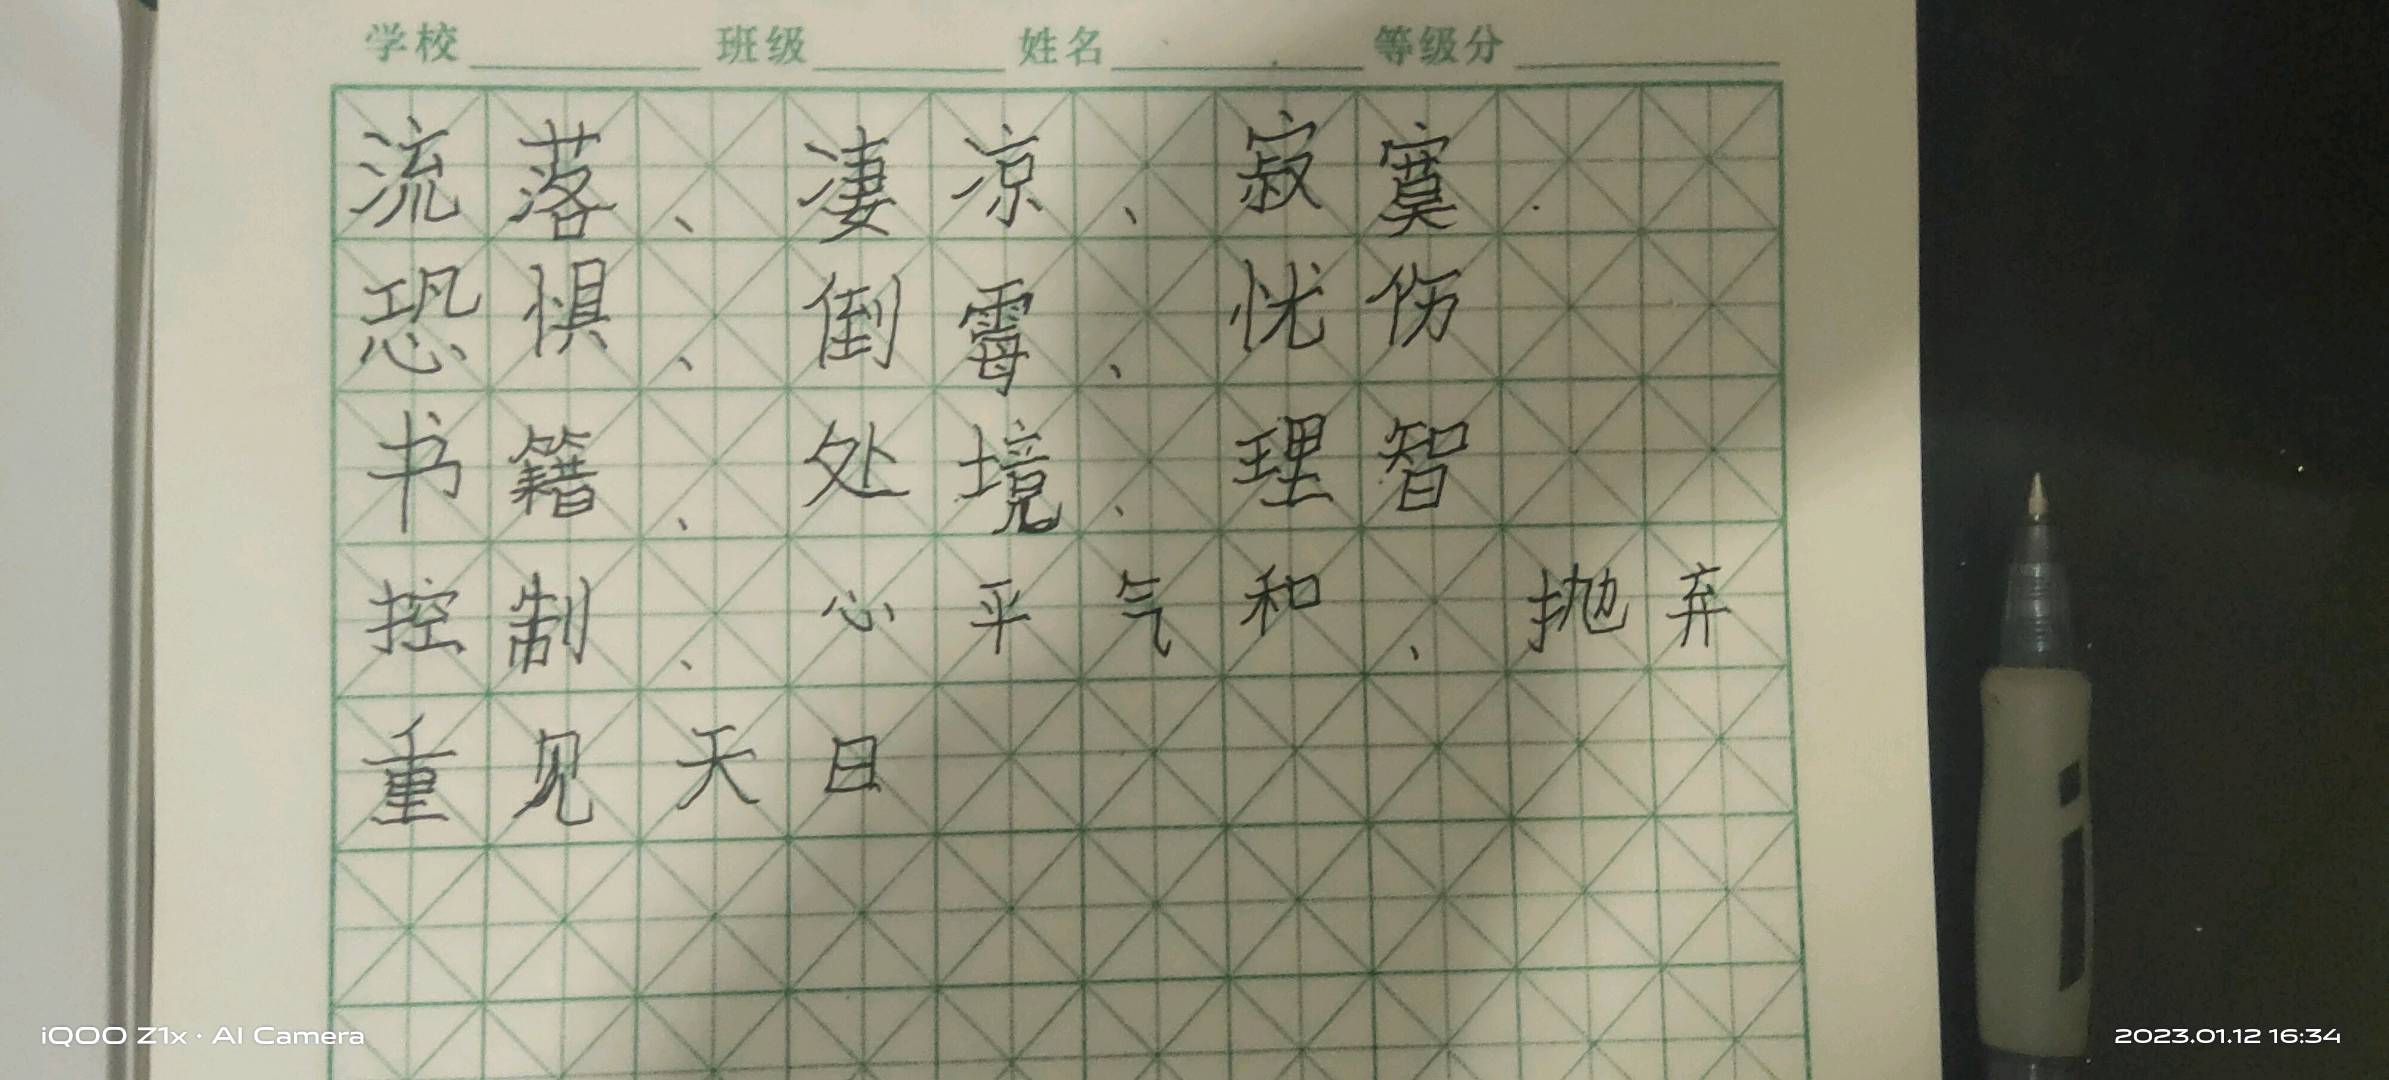 学校 班级 姓名 等级分
流落、凄凉、寂寞
恐惧、倒霉、忧伤
书籍、处境、理智
控制、心平气和、抛弃
重见天日
iQOO Z1x · AI Camera
2023.01.12 16:34